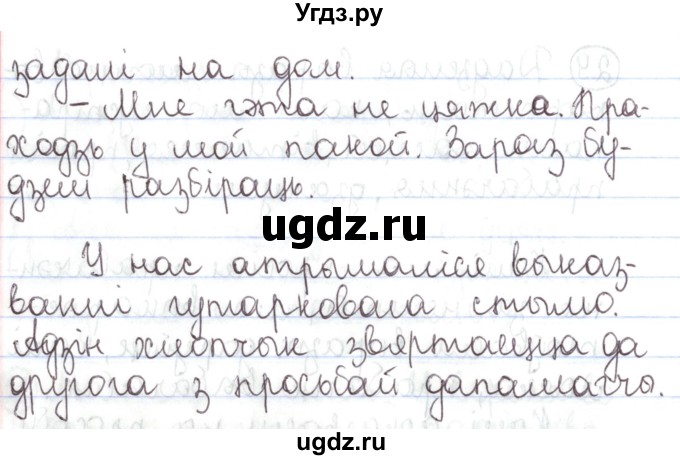 Угдз.ру
задалі на дом.
– Мне гэта не цяжка. Пра-
ходзь у мой пакой. Зараз бу-
дзем разбіраць.
ugdz.ru
У нас атрымаліся выказ-
ванні гутарковага стылю.
Адзін хлопчык звяртаецца да
другога з просьбай дапамагчы.
ugdz.ru